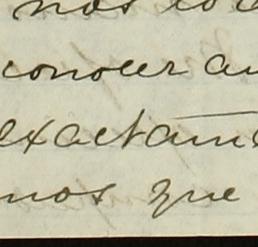 nos
conocer
exactam
nos que